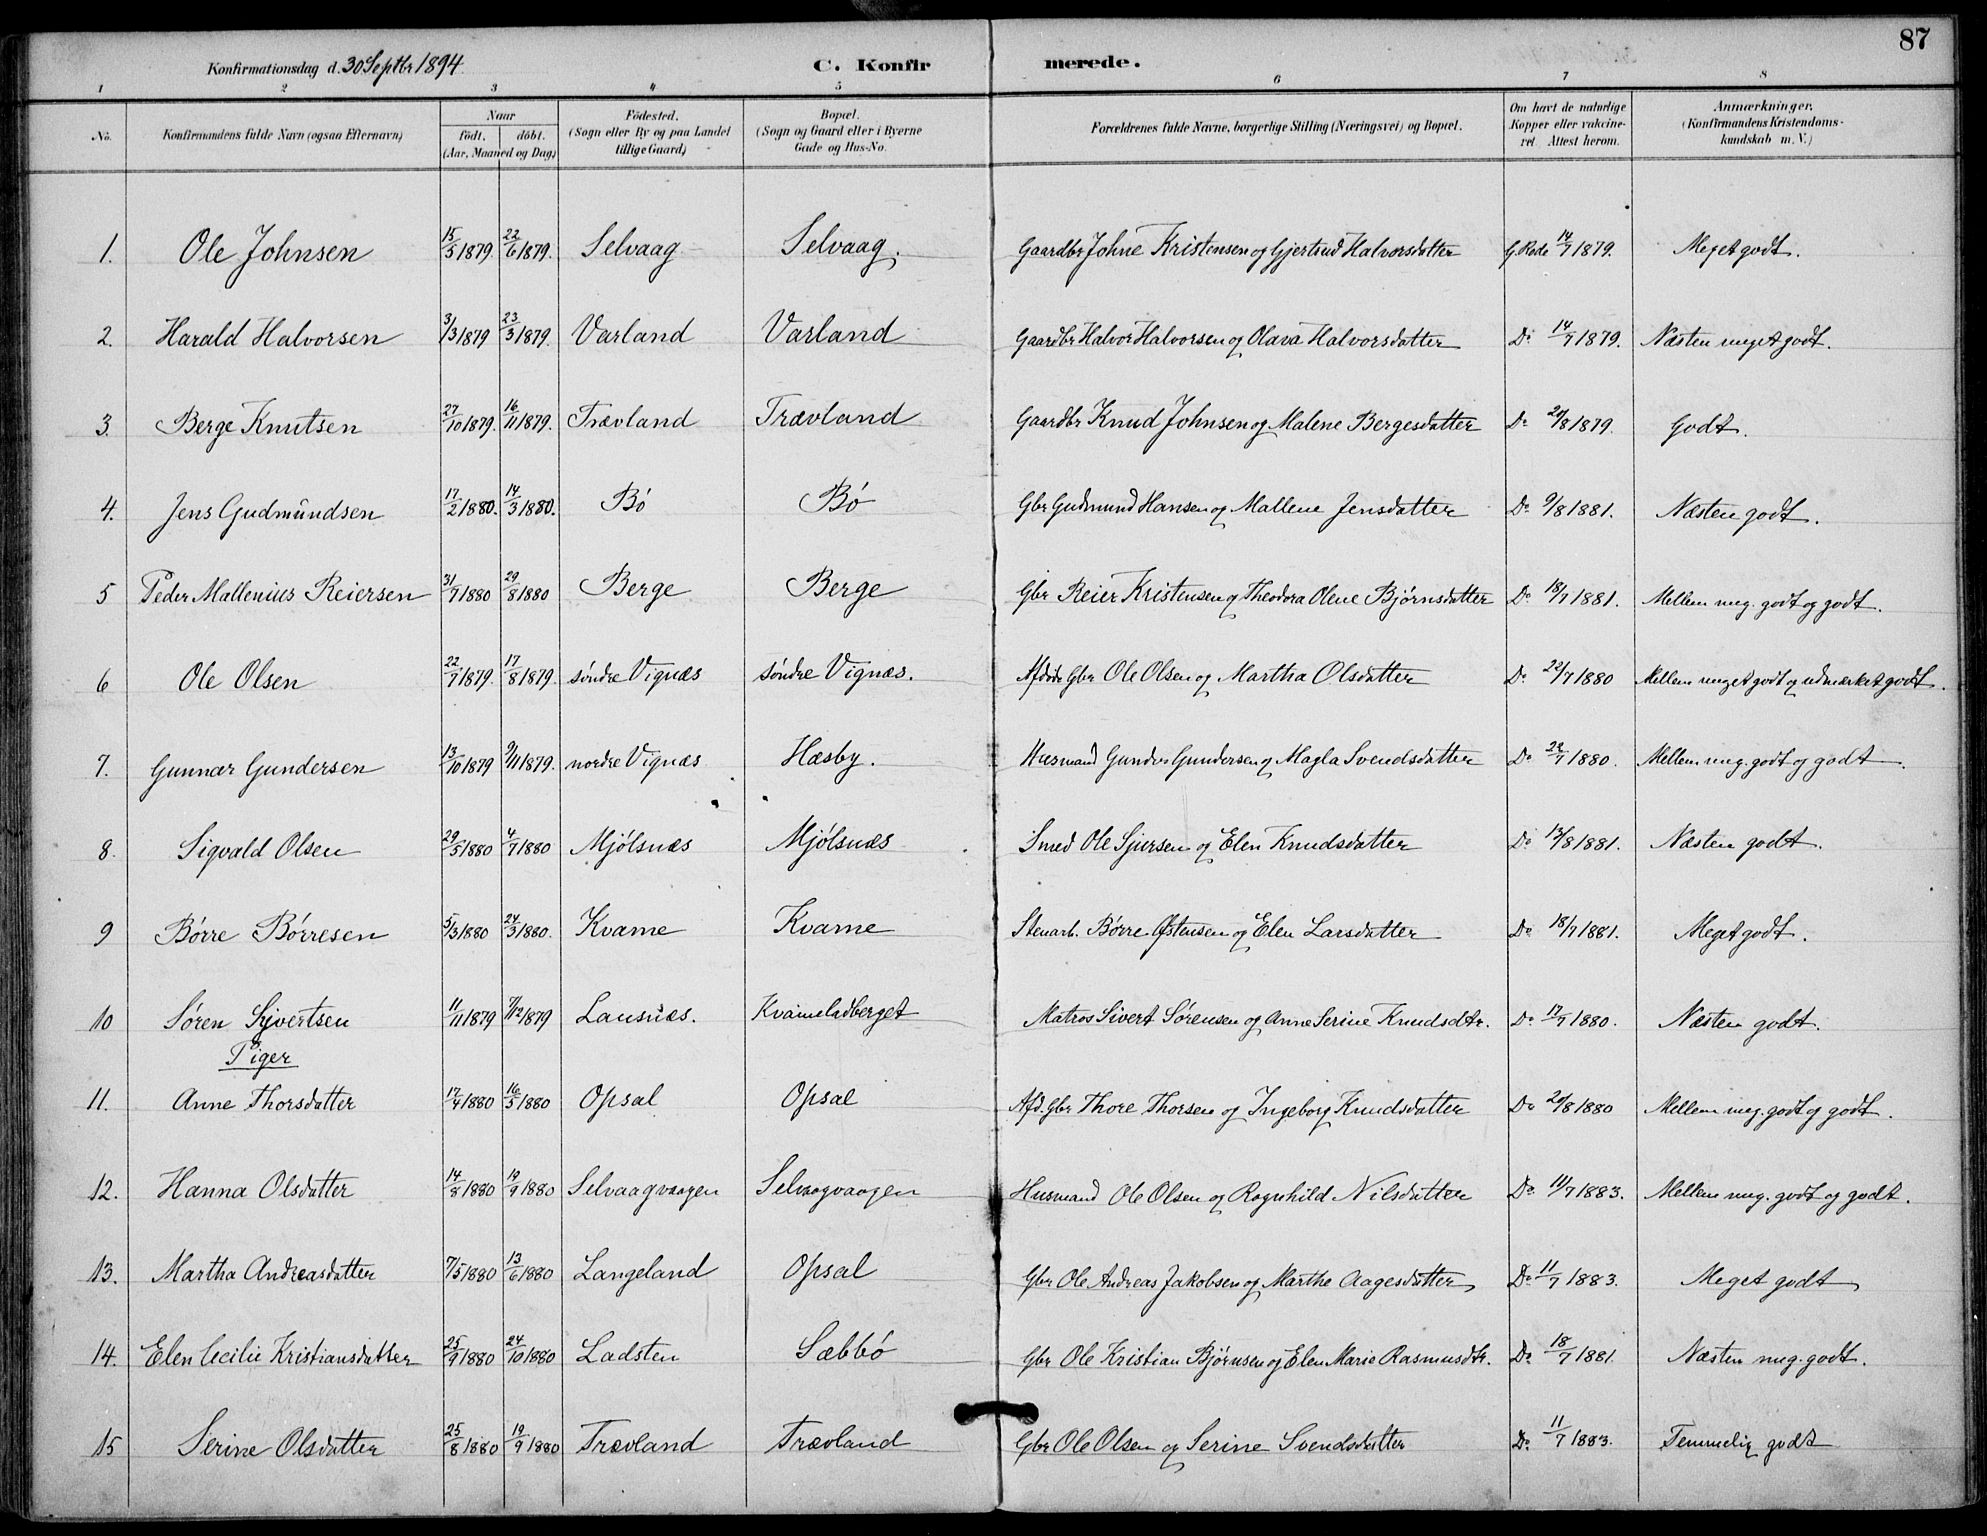 87
Konfirmationsdag d. 30 Septbr 1894. C. Konfirmerede.
1 2 3 4 5 6 7 8
No. Konfirmandens fulde Navn (ogsaa Efternavn) Naar født. døbt. (Aar, Maaned og Dag.) Fødested. (Sogn eller By og paa Landet tillige Gaard.) Bopæl. (Sogn og Gaard eller i Byerne Gade og Hus-No. Forældrenes fulde Navne, borgerlige Stilling (Næringsvei) og Bopæl. Om havt de naturlige Kopper eller vakcineret. Attest herom. Anmærkninger. (Konfirmandens Kristendomskundskab m. V.)
1. Ole Johnsen 15/5 1879. 22/6 1879. Selvaag Selvaag. Gaardbr Johne Kristensen og Gjertrud Halvorsdatter G. Rode 14/7 1879. Meget godt.
2. Harald Halvorsen 3/3 1879 23/3 1879. Varland Varland Gaardbr Halvor Halvorsen og Olava Halvorsdatter Do 14/7 1879. Næsten meget godt.
3. Berge Knutsen 27/10 1879. 16/11 1879. Trævland Trævland Gaardbr Knud Johnsen og Malene Bergesdatter Do 20/8 1879. Godt.
4. Jens Gudmundsen 17/2 1880. 14/3 1880. Bö Bö Gbr Gudmund Hansen og Mallene Jensdatter Do 9/8 1881. Næsten godt.
5 Peder Mallenius Reiersen 31/7 1880 29/8 1880 Berge Berge Gbr Reier Kristensen og Theodora Olene Bjørnsdatter Do 18/7 1881. Mellem meg. godt og godt.
6 Ole Olsen 22/7 1879. 17/8 1879. söndre Vignæs söndre Vignæs. Afdøde Gbr Ole Olsen og Martha Olsdatter Do 22/7 1880 Mellem meget godt og udmærket godt.
7. Gunnar Gundersen 13/10 1879 9/11 1879. nordre Vignæs Hæsby. Husmand Gunder Gundersen og Magla Svendsdatter Do 22/7 1880. Mellem meg. godt og godt.
8. Sigvald Olsen 29/5 1880 4/7 1880 Mjölsnæs Mjölsnæs Smed Ole Sjursen og Elen Knudsdatter Do 13/8 1881. Næsten godt.
9 Börre Börresen 5/3 1880 24/3 1880. Kvame Kvame Stenarb. Börre Østensen og Elen Larsdatter Do 18/7 1881. Meget godt.
10 Sören Sivertsen 11/11 1879 7/12 1879 Lausnæs. Kvameladberget Matros Sivert Sørensen og Anne Serine Knudsdtr. Do 17/7 1880. Næsten godt.
Piger
11. Anne Thorsdatter 17/4 1880 16/5 1880 Opsal Opsal Afd. Gbr Thore Thorsen og Ingeborg Knudsdatter Do 20/8 1880 Mellem meg. godt og godt.
12. Hanna Olsdatter 14/8 1880 19/9 1880 Selvaagvaagen Selvaagvaagen Husmand Ole Olsen og Ragnhild Nilsdatter Do 11/7 1883. Mellem meg. godt og godt.
13. Martha Andreasdatter 7/5 1880 13/6 1880 Langeland Opsal Gbr Ole Andreas Jakobsen og Marthe Aagesdatter Do 11/7 1883. Meget godt
14. Elen Cecilie Kristiansdatter 25/9 1880 24/10 1880 Ladsten Sæbbö Gbr Ole Kristian Bjørnsen og Elen Marie Rasmusdtr. Do 18/7 1881. Næsten meg. godt.
15 Serine Olsdatter 25/8 1880 19/9 1880 Trævland Trævland Gbr Ole Olsen og Serine Svendsdatter Do 11/7 1883. Temmelig godt